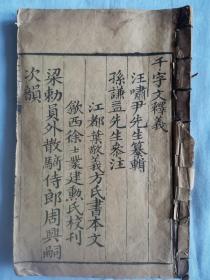 千字文釋義
汪嘯尹先生纂輯
孫謙益先生叅注
江都葉敬義方氏書本文
歙西徐士業建勲氏校刊
梁勅員外散騎侍郎周興嗣
次韻